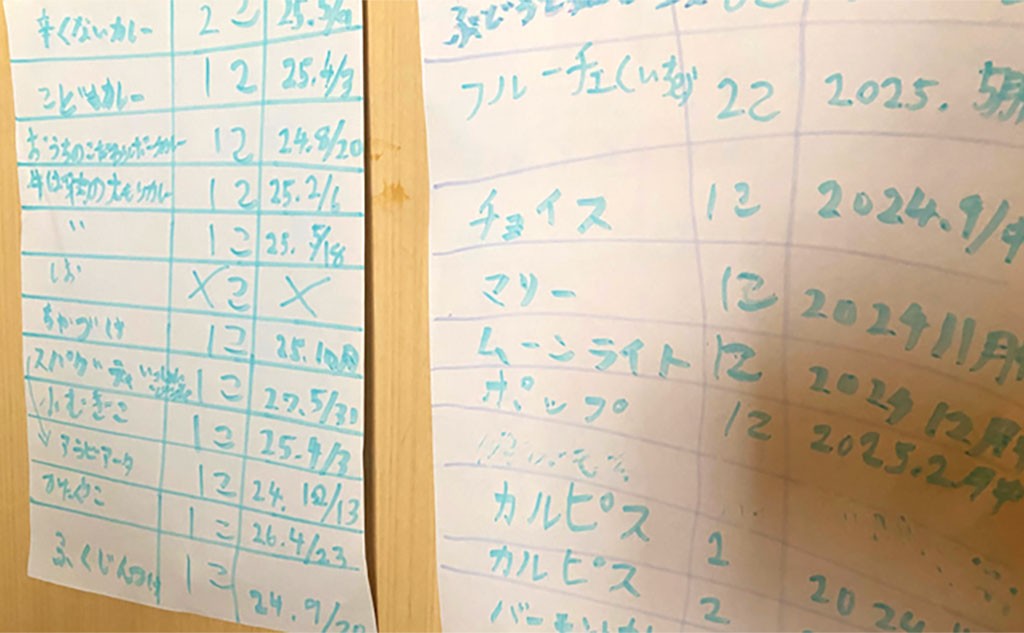 辛くないカレー 2こ 25.5/9
こどもカレー 1こ 25.4/3
おうちのこだわりポークカレー 1こ 24.8/20
1こ 25.2/6
〃 1こ 25.5/18
しお Xこ X
1こ 25.10月
スパゲティ 1こ 27.5/30
小むぎこ 1こ 25.4/3
アラビアータ 1こ 24.12/13
かたくりこ 1こ 26.4/23
ふくじんづけ 1こ 24.9/20
フルーチェ 2こ 2025.5月
チョイス 1こ 2024.9/
マリー 1こ 2024 11月
ムーンライト 1こ 2024 12月
ポップ 1こ 2025.2月
カルピス 2
カルピス 2 2024